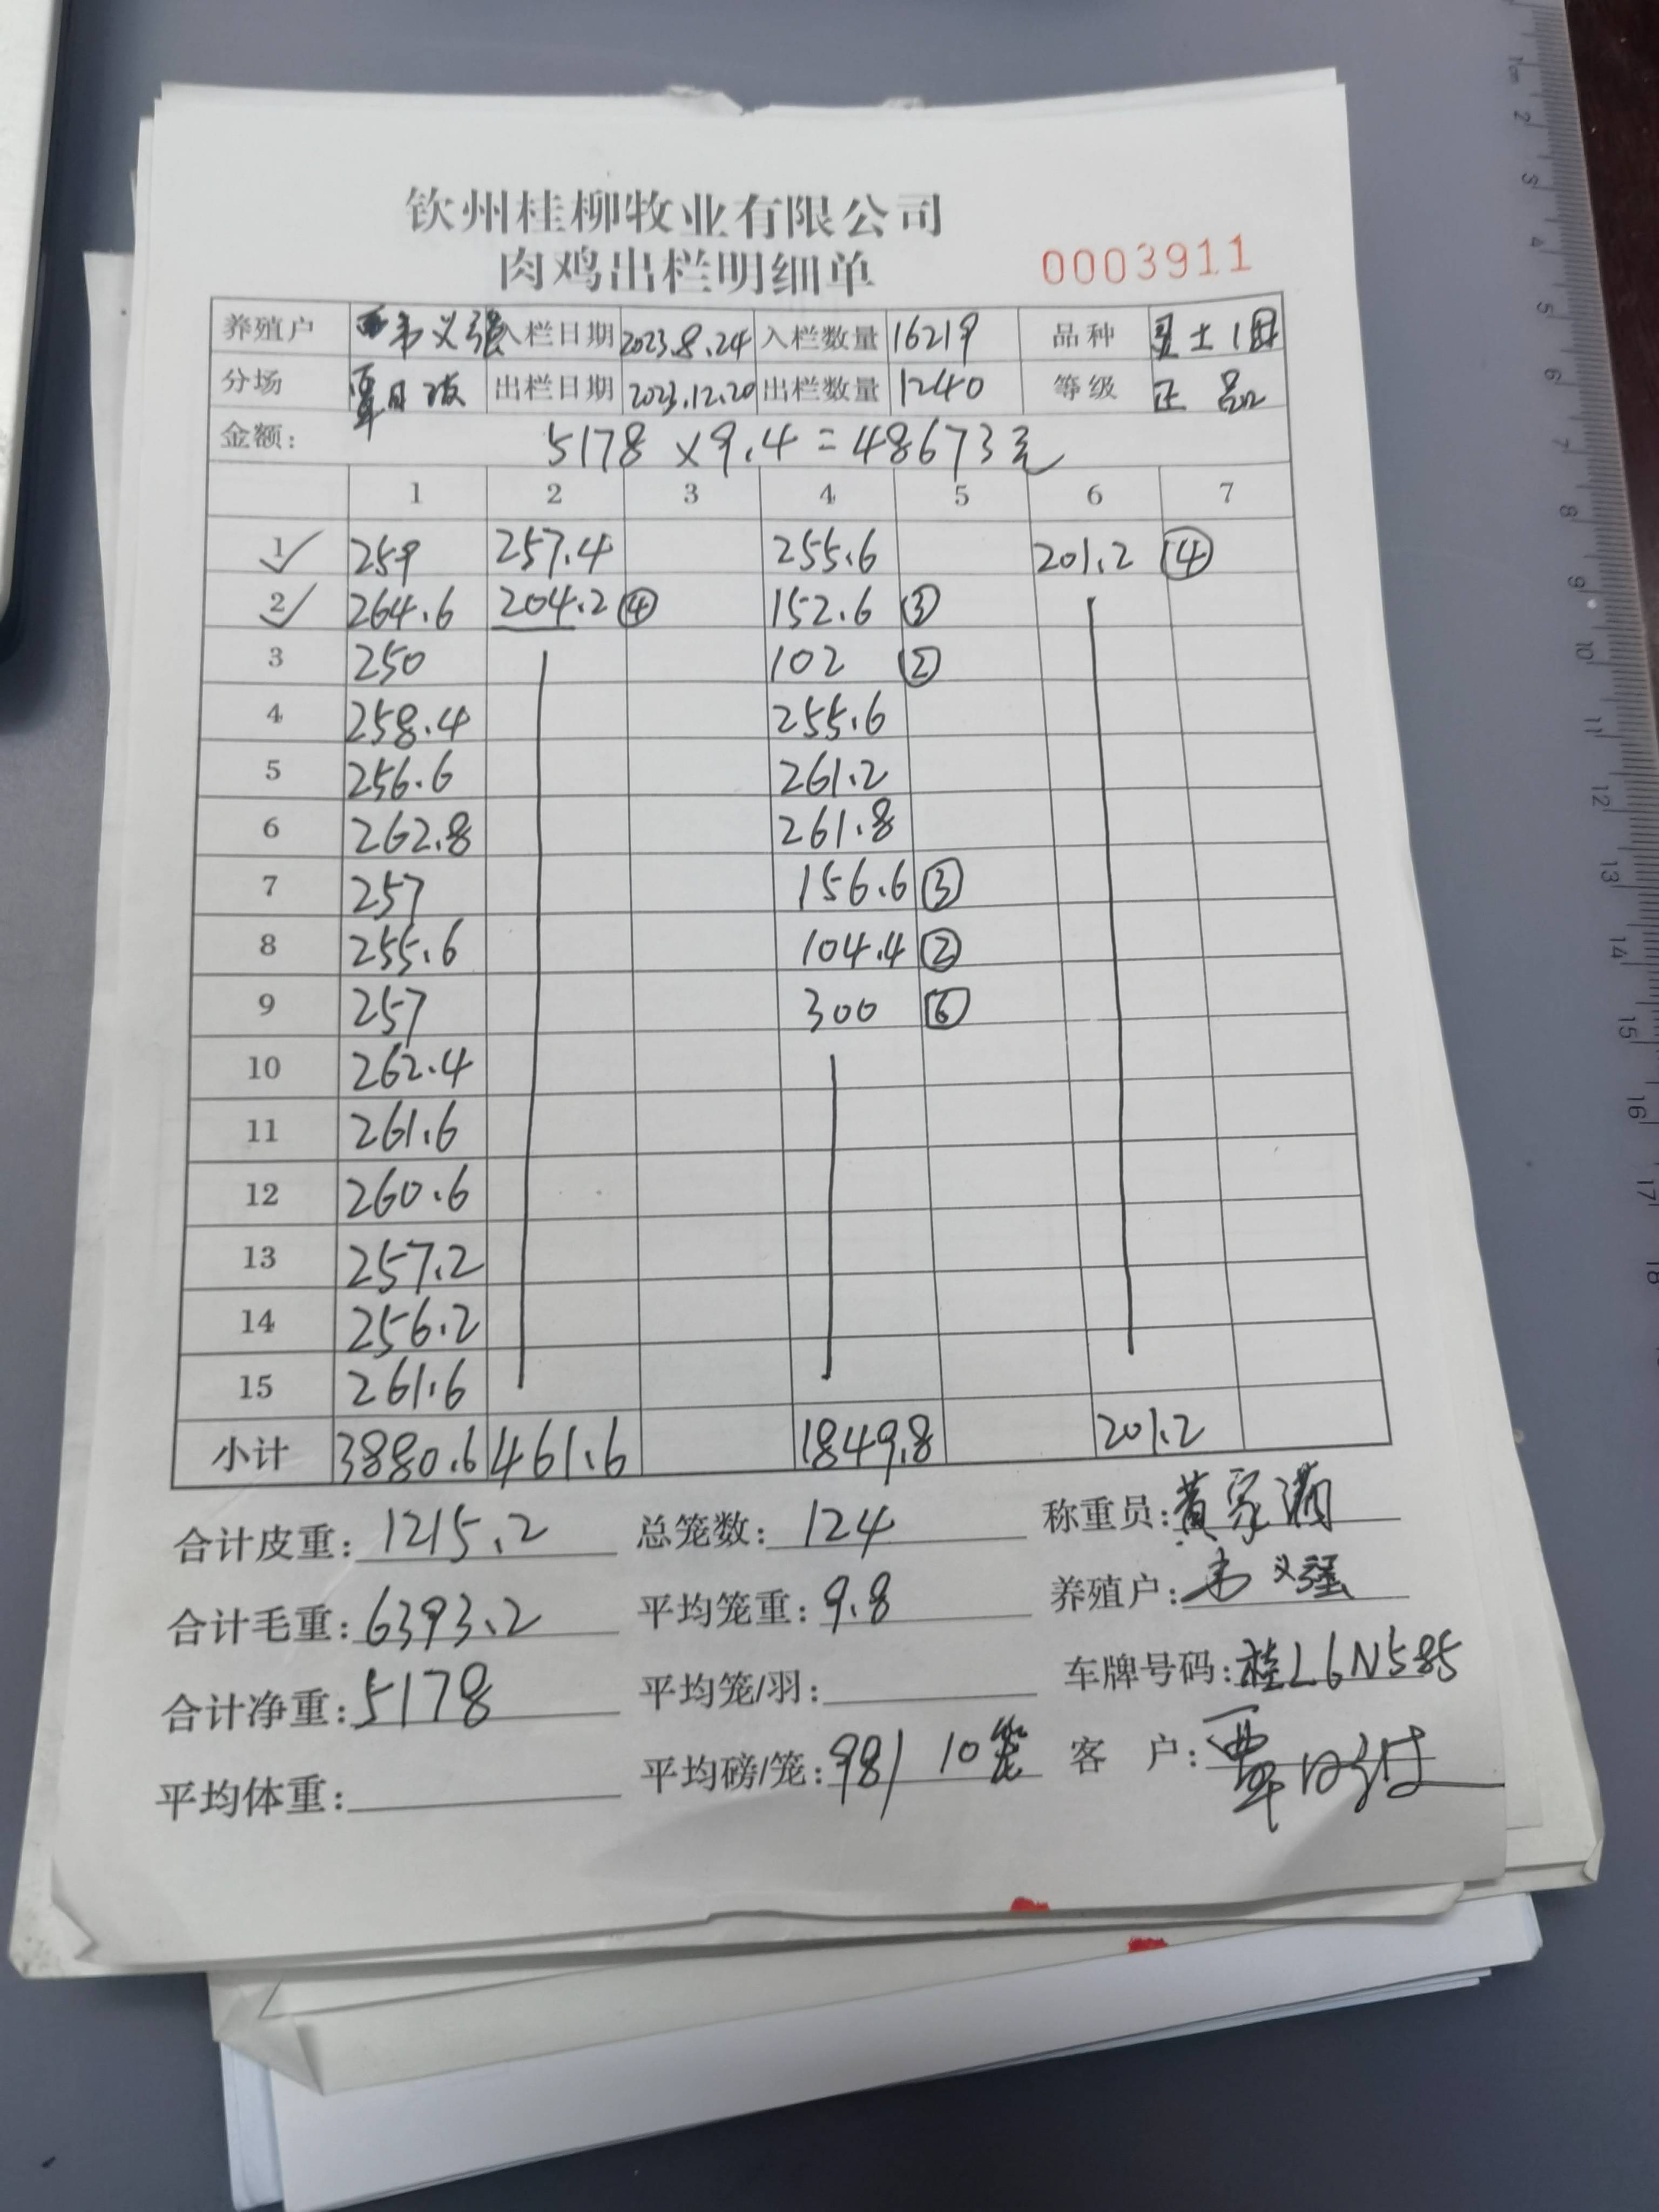 钦州桂柳牧业有限公司
肉鸡出栏明细单 0003911
养殖户 韦义强 入栏日期 2023.8.24 入栏数量 16219 品种 土1
分场 覃日 出栏日期 2023.12.20 出栏数量 1240 等级 正品
金额: 5178×9.4=48673元
1 2 3 4 5 6 7
1 259 257.4 255.6 201.2 ④
2 264.6 204.2 ④ 152.6 ③
3 250 102 ②
4 258.4 255.6
5 256.6 261.2
6 262.8 261.8
7 257 156.6 ③
8 255.6 104.4 ②
9 257 300 ⑥
10 262.4
11 261.6
12 260.6
13 257.2
14 256.2
15 261.6
小计 3880.6 461.6 1849.8 201.2
合计皮重: 1215.2 总笼数: 124 称重员: 黄家
合计毛重: 6393.2 平均笼重: 9.8 养殖户: 韦义强
合计净重: 5178 平均笼/羽: 车牌号码: 桂L6N585
平均体重: 平均磅/笼: 98/ 10笼 客 户: 覃日